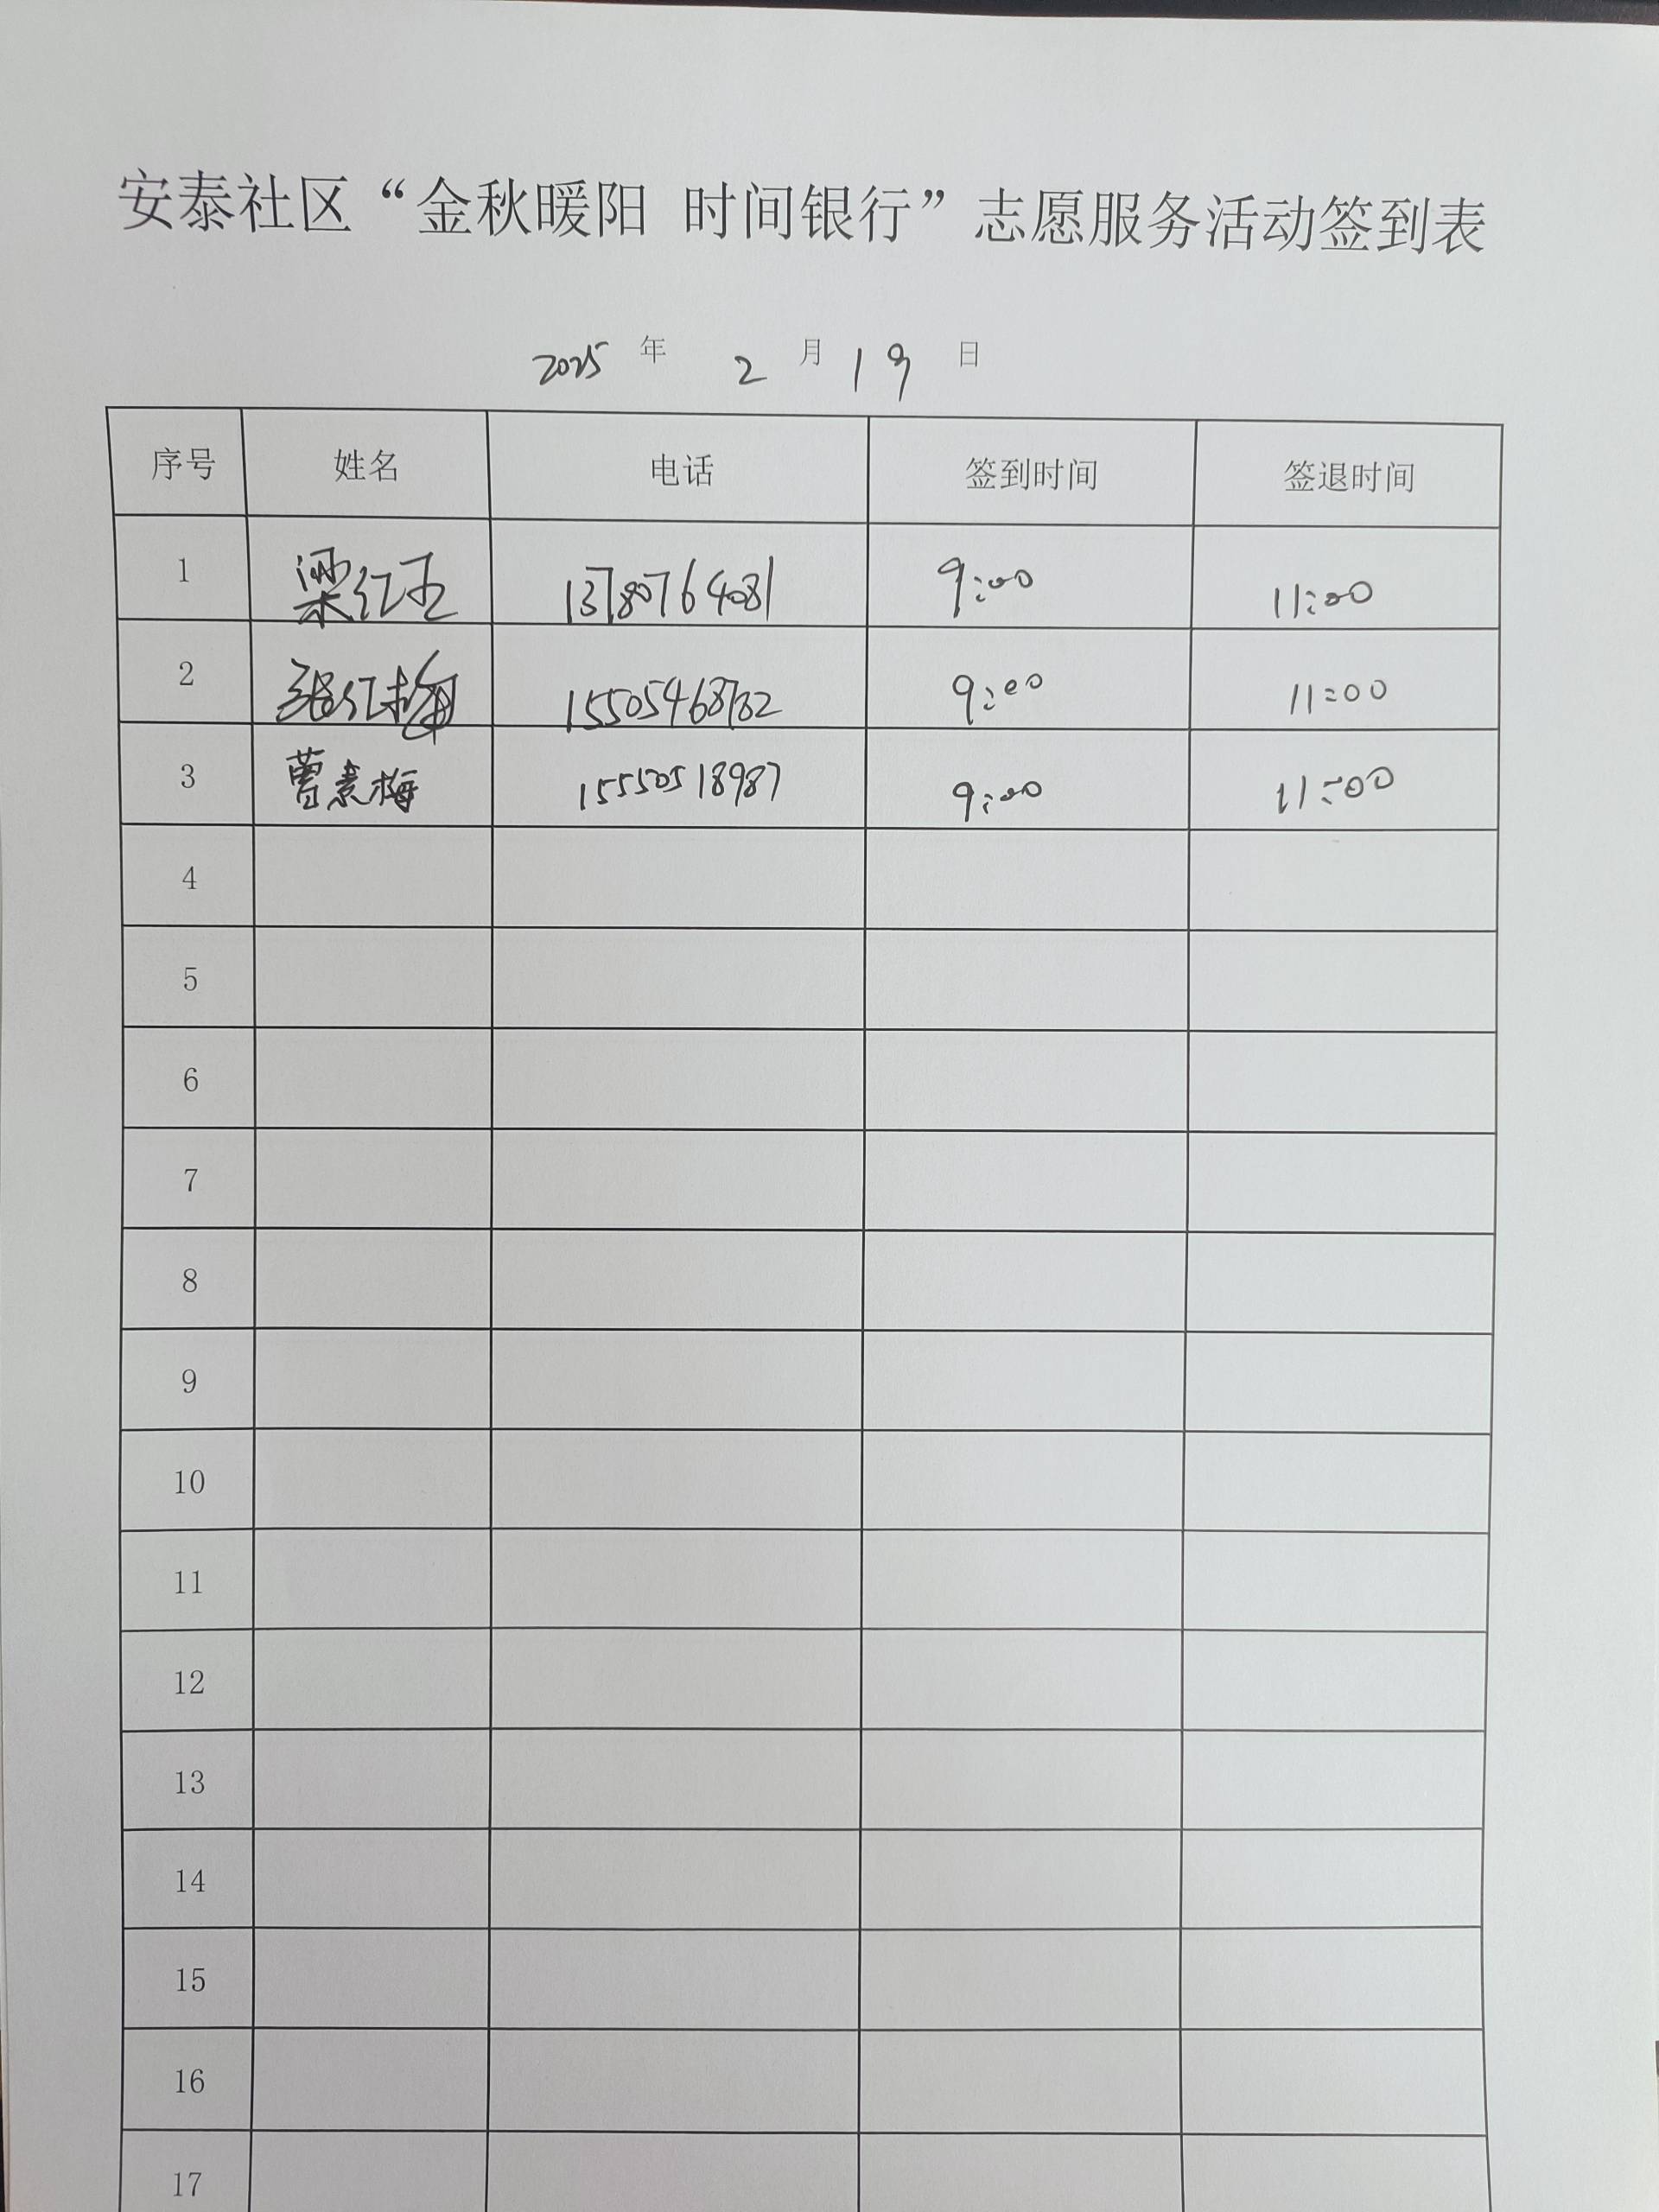 安泰社区“金秋暖阳 时间银行”志愿服务活动签到表
2025 年 2 月 19 日
序号 姓名 电话 签到时间 签退时间
1 梁红玉 13780764081 9:00 11:00
2 张红梅 15505468782 9:00 11:00
3 曹素梅 15550518987 9:00 11:00
4
5
6
7
8
9
10
11
12
13
14
15
16
17